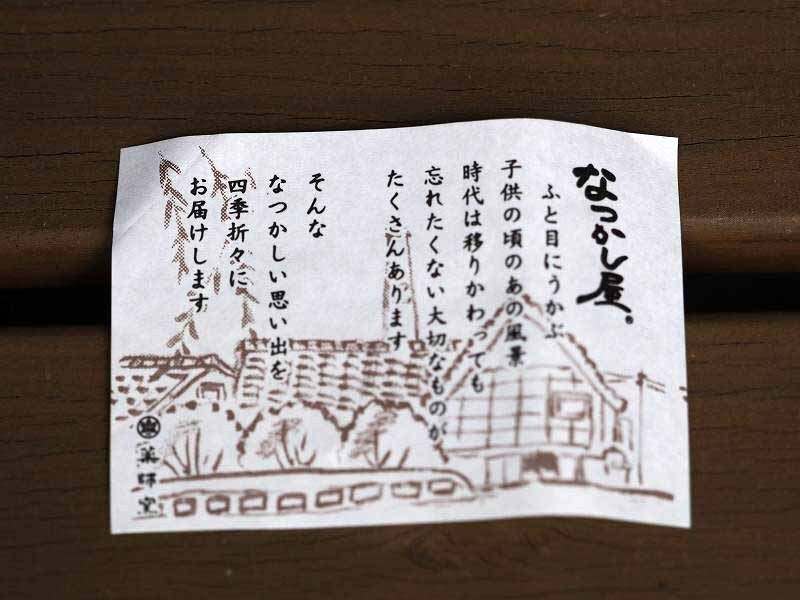 なつかし屋。
ふと目にうかぶ
子供の頃のあの風景
時代は移りかわっても
忘れたくない大切なものが
たくさんあります
そんな
なつかしい思い出を
四季折々に
お届けします
薬師窯